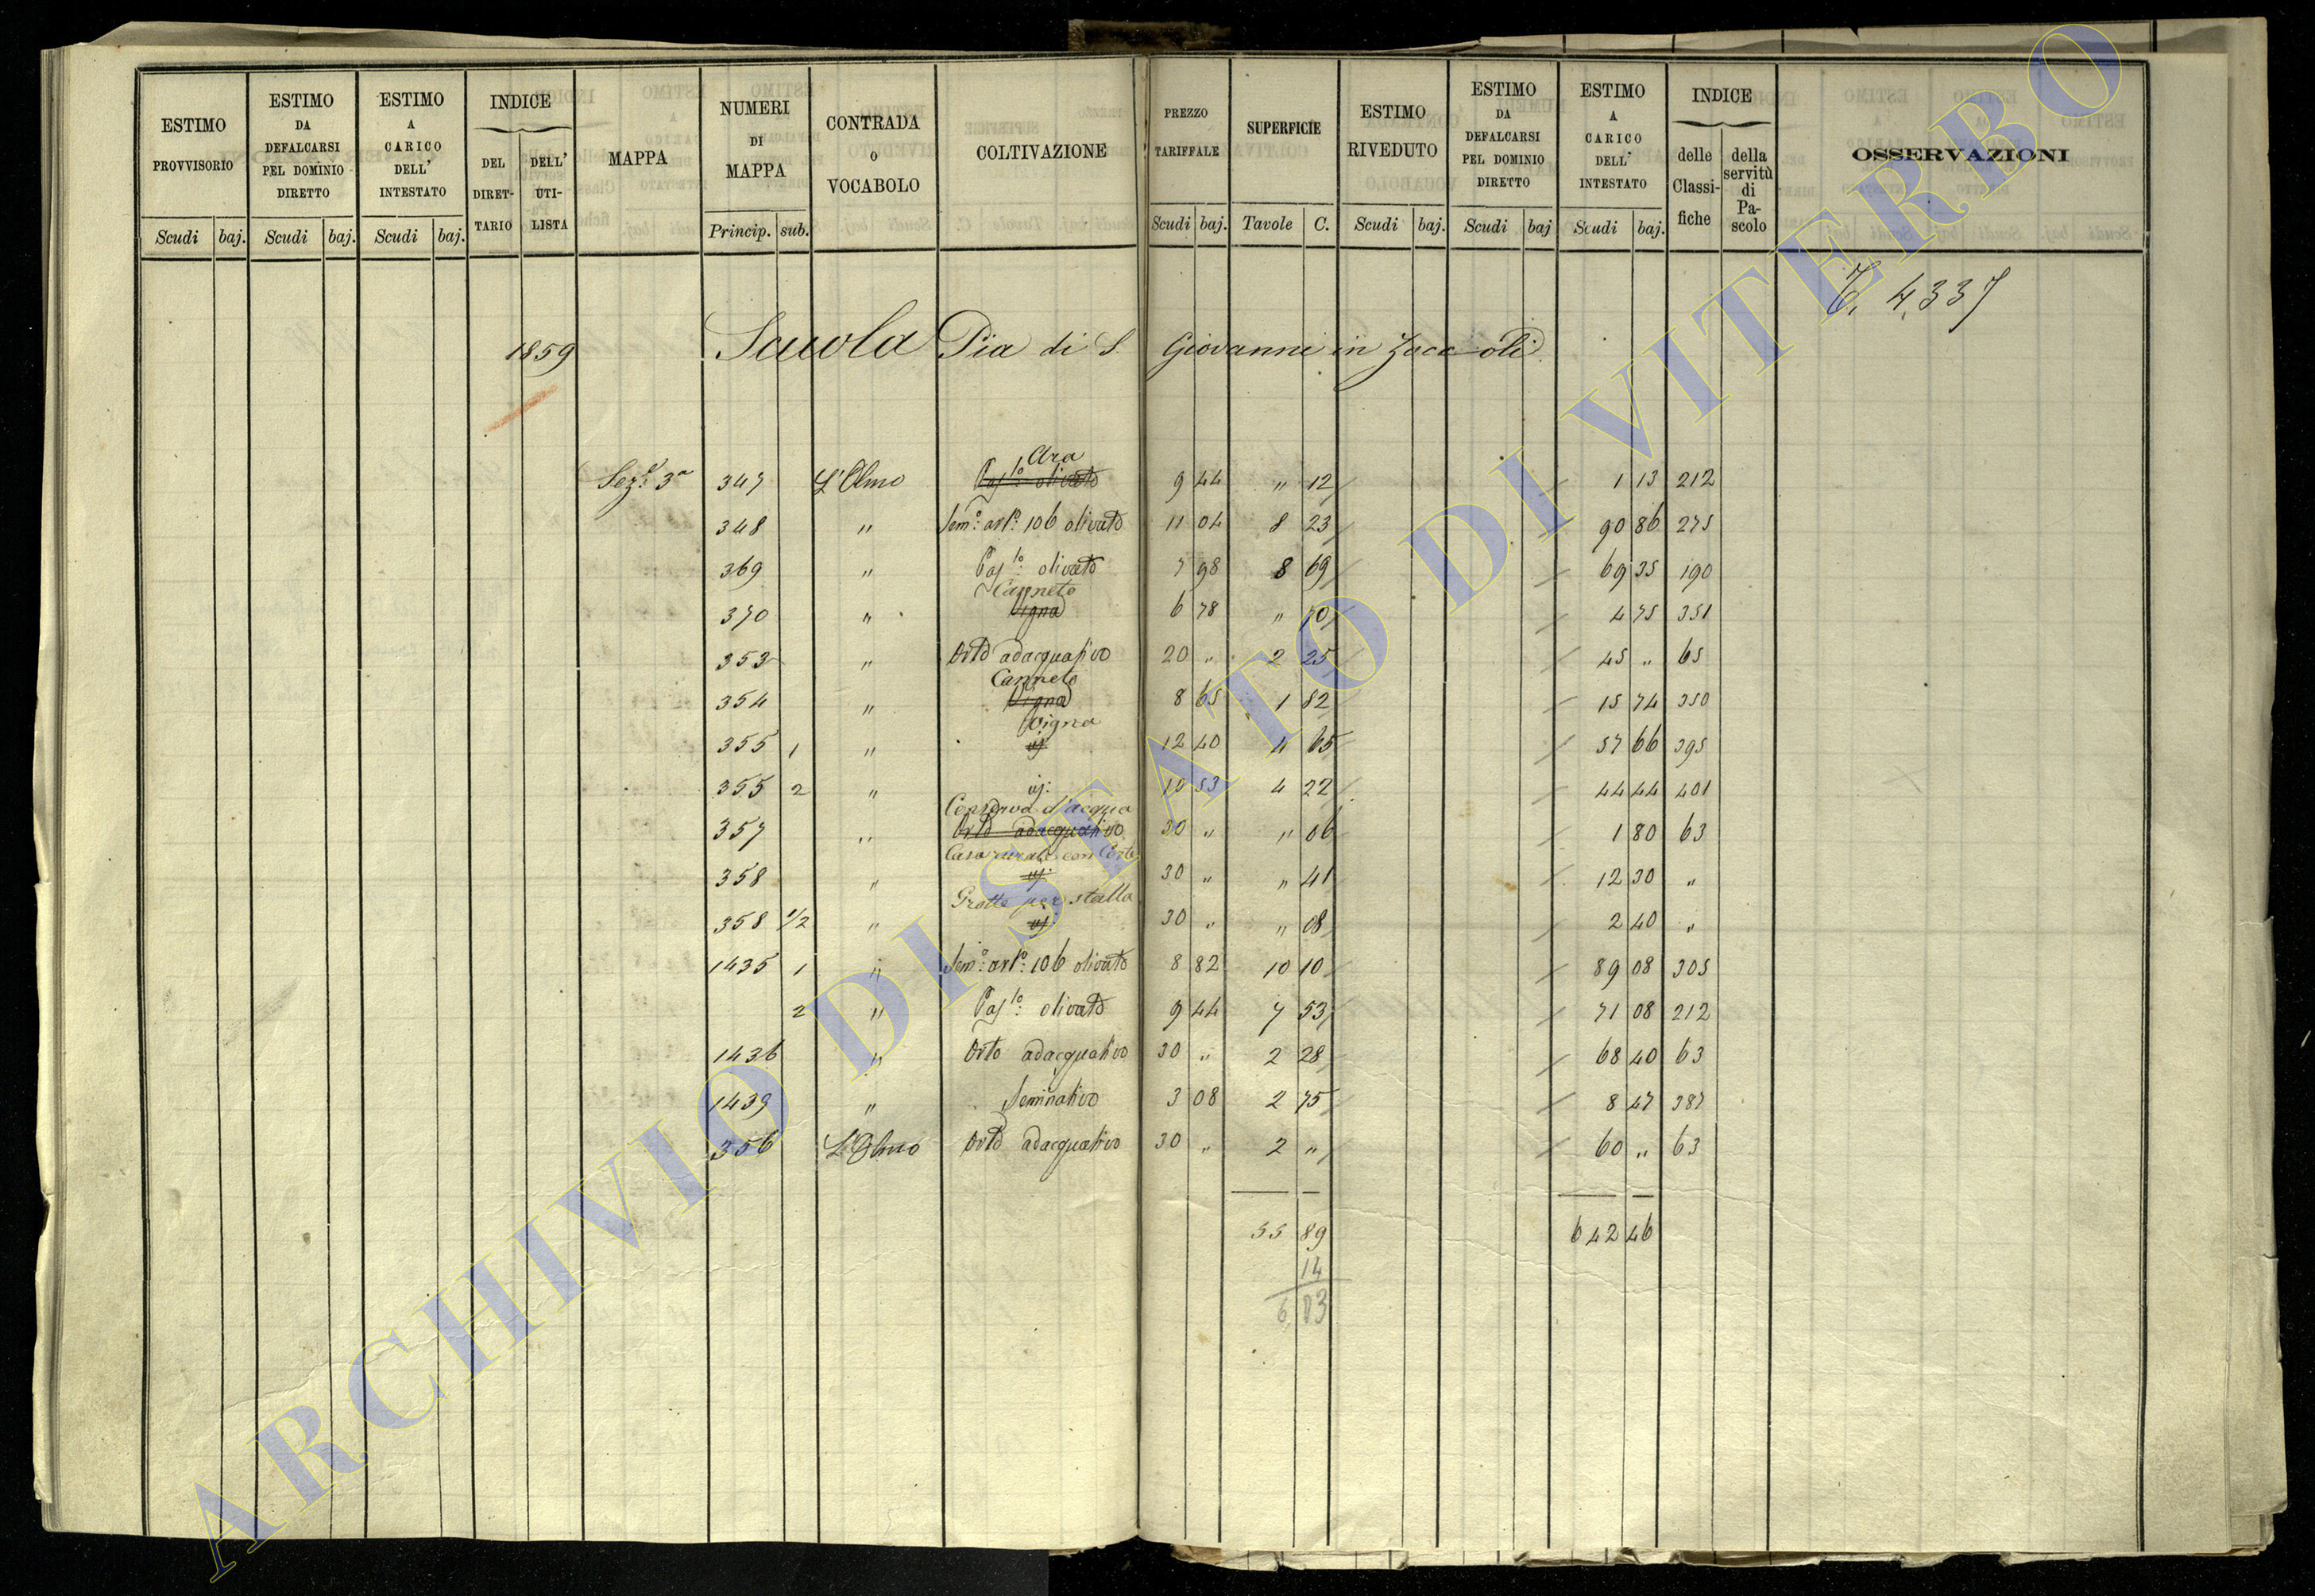 ESTIMO PROVVISORIO | ESTIMO DA DEFALCARSI PEL DOMINIO DIRETTO | ESTIMO A CARICO DELL' INTESTATO | INDICE DEL DIRETTARIO | DELL' UTILISTA | MAPPA | NUMERI DI MAPPA | CONTRADA O VOCABOLO | COLTIVAZIONE | PREZZO TARIFFALE | SUPERFICIE | ESTIMO RIVEDUTO | ESTIMO DA DEFALCARSI PEL DOMINIO DIRETTO | ESTIMO A CARICO DELL' INTESTATO | INDICE delle Classifiche | della servitù di Pascolo | OSSERVAZIONI
Scudi baj. Scudi baj. Scudi baj. Princip. sub. Scudi baj. Tavole C. Scudi baj. Scudi baj Scudi baj.
4,337
1859 Scuola Pia di S. Giovanni in Zoccoli
Ara
Sez.e 3a 347 L'Olmo Pas.lo olivato 9 44 " 12 1 13 212
348 " Sem.o art.o 106 olivato 11 04 8 23 90 86 275
369 " Pas.lo olivato 7 98 8 69 69 35 190
Canneto
370 " Vigna 6 78 " 70 4 75 351
353 " Orto adacquativo 20 " 2 25 45 " 65
Canneto
354 " Vigna 8 65 1 82 15 74 350
Vigna
355 1 " 12 40 4 65 57 66 395
355 2 " 10 53 4 22 44 44 401
Conserva d'acqua
357 " Orto adacquativo 30 " " 06 1 80 63
Casa rurale con Corte
358 " 30 " " 41 12 30 "
Grotte per stalla
358 1/2 " 30 " " 08 2 40 "
1435 1 " Sem.o art.o 106 olivato 8 82 10 10 89 08 305
2 " Pas.lo olivato 9 44 7 53 71 08 212
1436 " Orto adacquativo 30 " 2 28 68 40 63
1439 " Seminativo 3 08 2 75 8 47 387
356 L'Olmo Orto adacquativo 30 " 2 " 60 " 63
55 89 642 46
14
6 03
ARCHIVIO DI STATO DI VITERBO